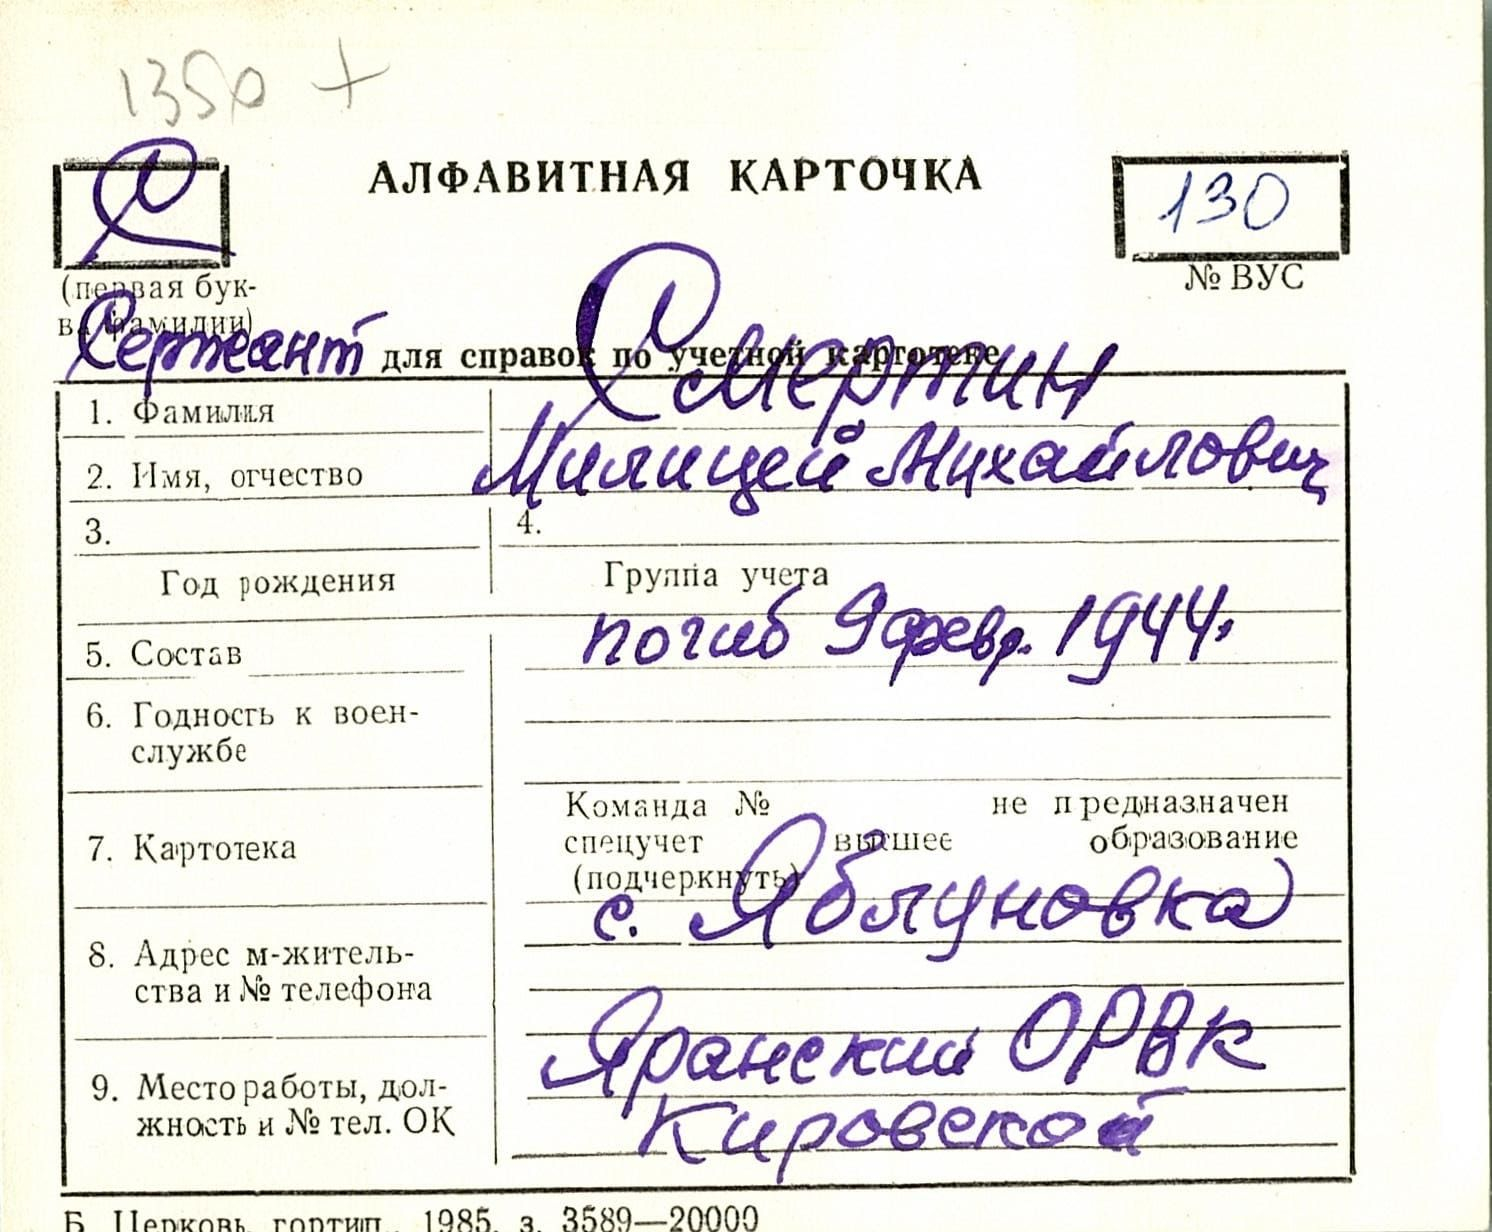 1350 +
С
АЛФАВИТНАЯ КАРТОЧКА
130
(первая бук-
ва фамилии)
№ ВУС
Сержант для справок по учетной картотеке
1. Фамилия Смертин
2. Имя, отчество Милицей Михайлович
3. 4.
Год рождения Группа учета
5. Состав погиб 9 февр. 1944.
6. Годность к воен-
службе
Команда № не предназначен
7. Картотека спецучет высшее образование
(подчеркнуть)
с. Яблуновка
8. Адрес м-житель-
ства и № телефона
Яранский ОРВК
9. Место работы, дол-
жность и № тел. ОК Кировской
Б. Церковь, гортип., 1985, з. 3589—20000